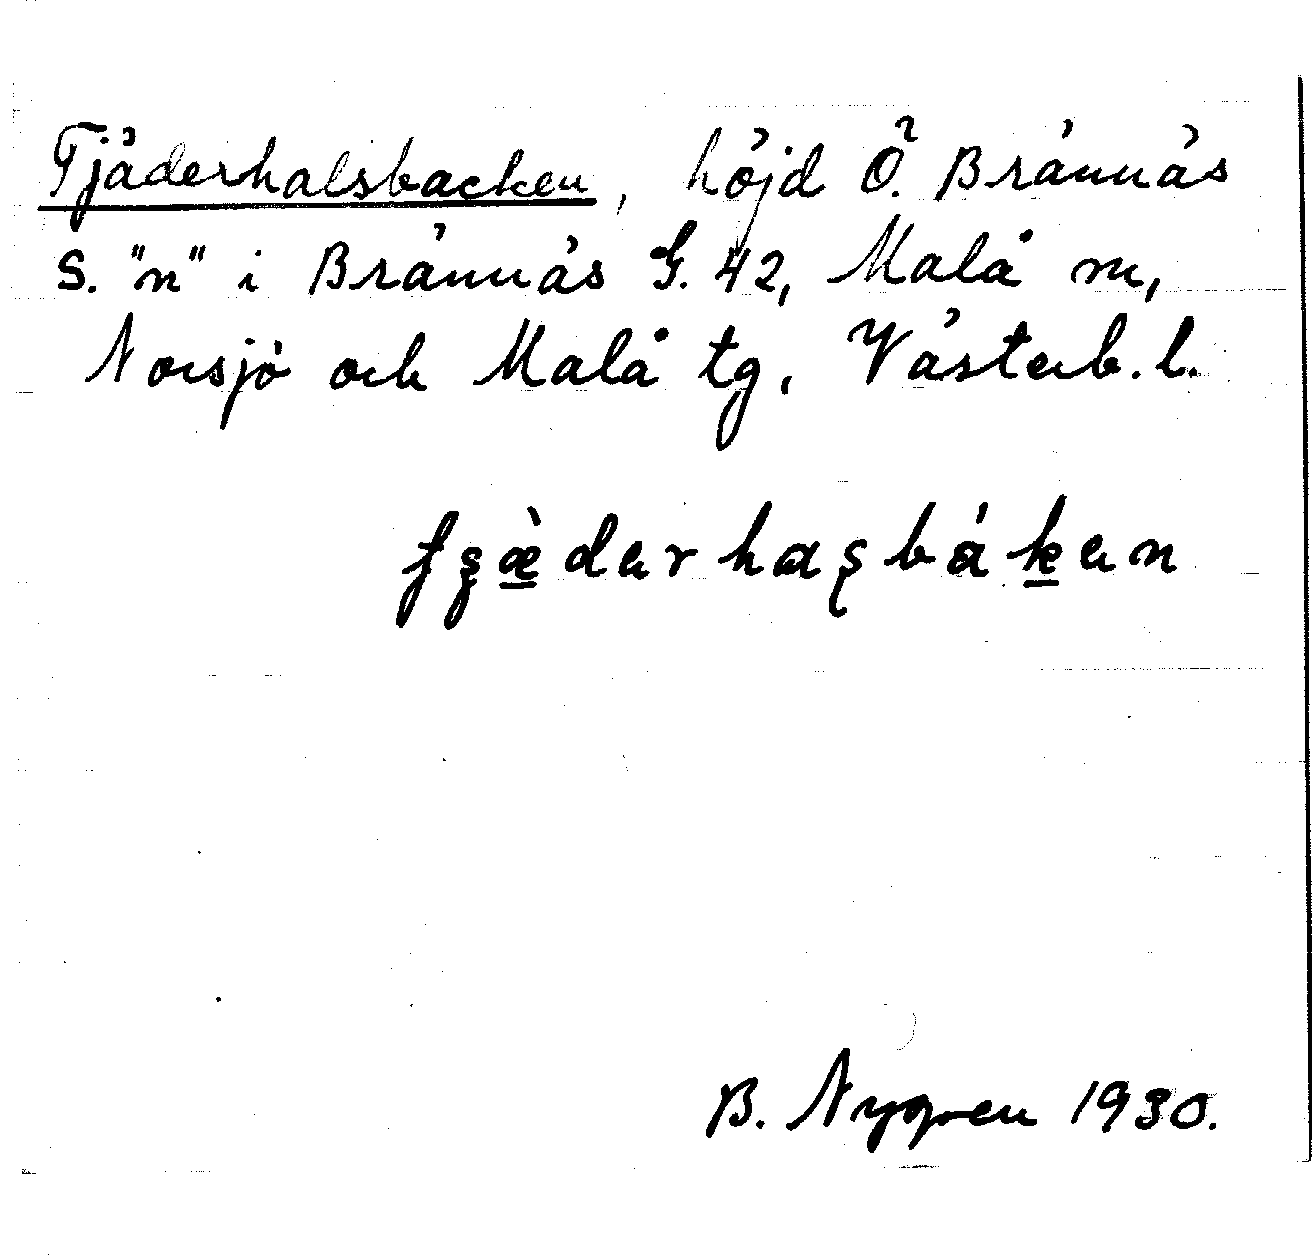 Tjäderhalsbacken, höjd Ö. Brännäs
S. "n" i Brännäs G. 42, Malå m,
Norsjö och Malå tg. Västerb. l.
B. Nygren 1930.